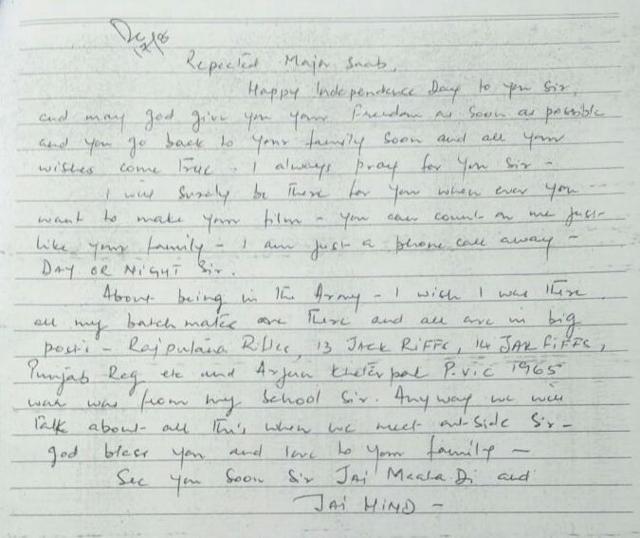 Repected Major Saab,
Happy Independence Day to you Sir,
and may god give you your freedom as soon as possible
and you go back to your family soon and all your
wishes come True. I always pray for you Sir -
I will Surely be There for you when ever you --
want to make your film - you can count on me just
like your family - I am just a phone call away -
DAY OR NIGHT Sir.
About being in The Army - I wish I was There
all my batch mates are There and all are in big
posts - Rajputana Rifles, 13 JACK RIFFS, 14 JAK RIFFS,
Punjab Reg etc and Arjun Kheterpal P.vic 1965
war was from my School Sir. Any way we will
Talk about all This when we meet out-side Sir -
god bless you and love to your family -
See you Soon Sir JAI Maata Di and
JAI HIND -